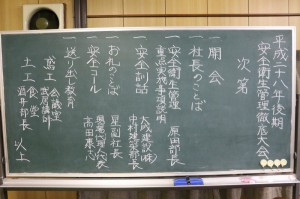 平成二十八年後期
安全衛生管理徹底大会
次第
一 開会
一 社長のことば
一 安全衛生管理
重点実施事項説明 原田部長
一 安全訓話
大成建設(株)
中村建築部長
一 お礼のことば 副社長
一 安全コール
高田
一 送り出し教育
鳶工 会議室
土工 食堂
酒井部長
以上